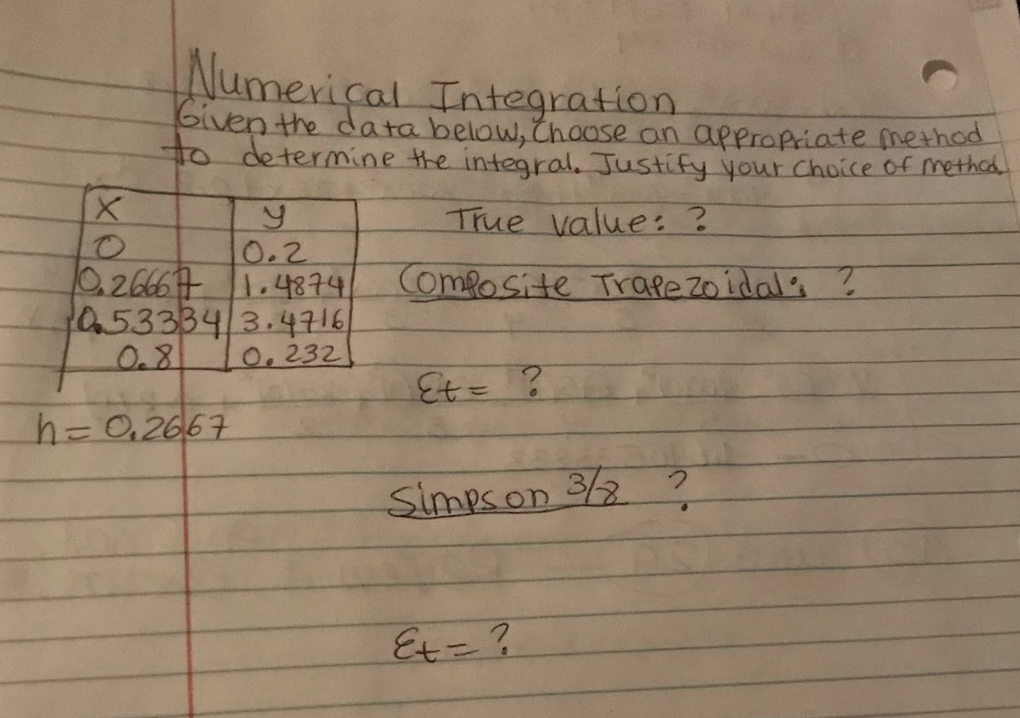 Numerical Integration
Given the data below, Choose an appropriate method
to determine the integral. Justify your choice of method.
x y
0 0.2
0.26667 1.4874
0.53334 3.4716
0.8 0.232
h = 0.2667
True value: ?
Composite Trapezoidal: ?
Ɛt = ?
Simpson 3/8 ?
Ɛt = ?